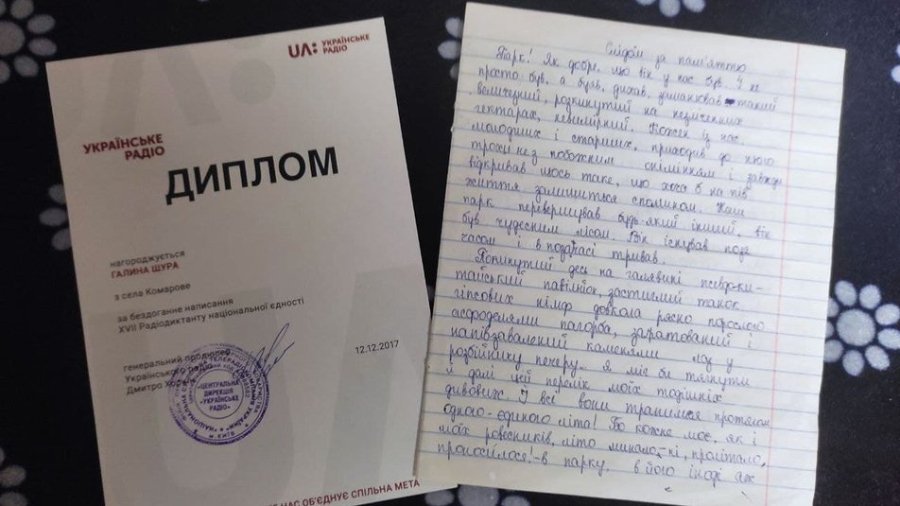 UA: УКРАЇНСЬКЕ
РАДІО
УКРАЇНСЬКЕ
РАДІО
ДИПЛОМ
нагороджується
ГАЛИНА ЩУРА
з села Комарове
за бездоганне написання
XVII Радіодиктанту національної єдності
генеральний продюсер
Українського радіо
Дмитро
12.12.2017
ЦЕНТРАЛЬНА
ДИРЕКЦІЯ
«УКРАЇНСЬКЕ
РАДІО»
НАС ОБ'ЄДНУЄ СПІЛЬНА МЕТА
Слідом за пам'яттю
Парк! Як добре, що він у нас був. І не
просто був, а буяв, дихав, заманював такий
величезний, розкинутий на незліченних
гектарах, невимірний. Кожен із нас,
молодших і старших, приходив до нього
трохи не з побожним спінінням і завжди
відкривав щось таке, що хоча б на пів
життя залишиться спомином. Наш
парк перевершував будь-який інший, він
був чудесним лісом. Він існував поза
часом і в позачассі тривав.
Покинутий десь на галявині псевдоки-
тайський павільйон, застиглий танок
гіпсових німф довкола рясно порослого
асфоделями пагорба, загратований і
напівзавалений каменями лаз у
розбійницьку печеру... я міг би тягнути
й далі цей перелік моїх тодішніх
дивовиж. І всі вони трапилися протягом
одного-єдиного літа! Бо кожне моє, як і
моїх ровесників, літо минало, ні, пролітало,
проносилося! - в парку. в його іноді аж